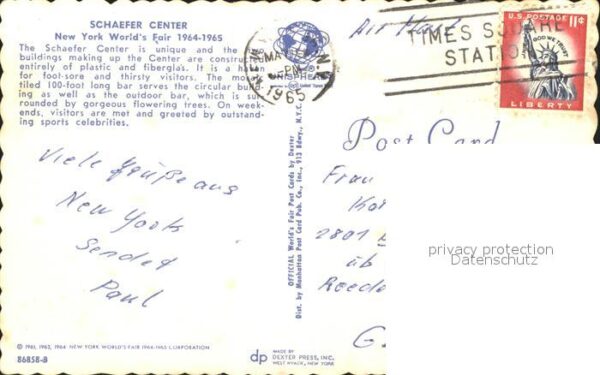 SCHAEFER CENTER
New York World's Fair 1964-1965
The Schaefer Center is unique and the
buildings making up the Center are construc
entirely of plastic and fiberglas. It is a ha
for foot-sore and thirsty visitors. The mo
tiled 100-foot long bar serves the circular build-
ing as well as the outdoor bar, which is sur-
rounded by gorgeous flowering trees. On week-
ends, visitors are met and greeted by outstand-
ing sports celebrities.
Viele Grüße aus
New York
sendet
Paul
© 1961, 1962, 1964 NEW YORK WORLD'S FAIR 1964-1965 CORPORATION
86858-B
NEW
PM
1965
TIMES SQUARE
STATION
U.S. POSTAGE 11¢
IN GOD WE TRUST
LIBERTY
Air Mail
OFFICIAL World's Fair Post Cards by Dexter
Dist. by Manhattan Post Card Pub. Co., Inc., 913 Bdwy., N.Y.C.
dp
MADE BY
DEXTER PRESS, INC.
WEST NYACK, NEW YORK
Post Card
Frau
2801
üb
Reede
G
privacy protection
Datenschutz